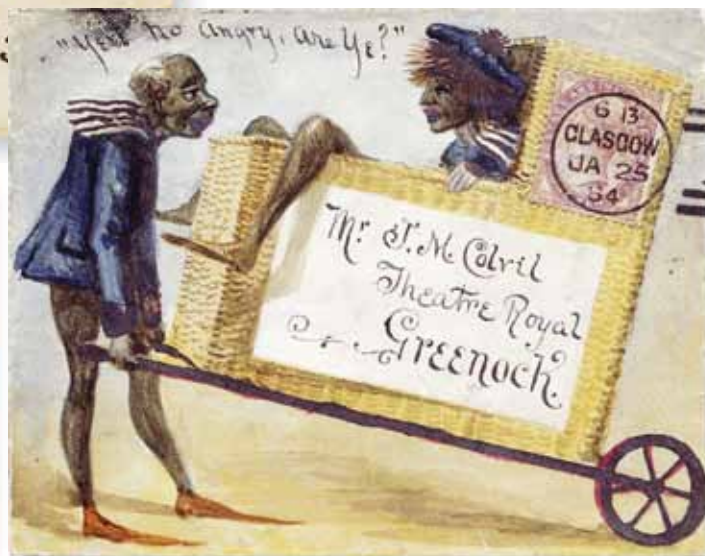 "Yer no angry, are Ye?"
6 13
GLASGOW
JA 25
84
Mr J. M. Colvil
Theatre Royal
Greenock.